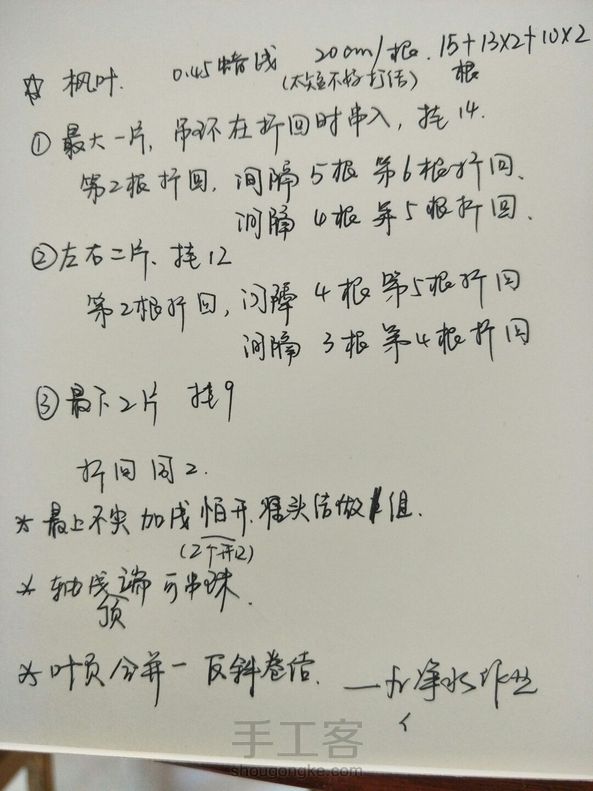 ☆ 枫叶. 0.45蜡线 20cm/根. 15+13×2+10×2
(太短不好打结) 根
① 最大一片, 吊环在折回时串入, 挂14.
第2根折回, 间隔5根 第6根折回.
间隔 4根 第5根折回.
② 左右二片. 挂12
第2根折回, 间隔 4根 第5根折回
间隔 3根 第4根折回
③ 最下2片 挂9
折回同2.
* 最上不尖 加线 怕开. 结做1组.
(2个开2)
* 轴线端可串珠.
顶
* 叶页分并一 反斜卷结.
手工客
shougongke.com